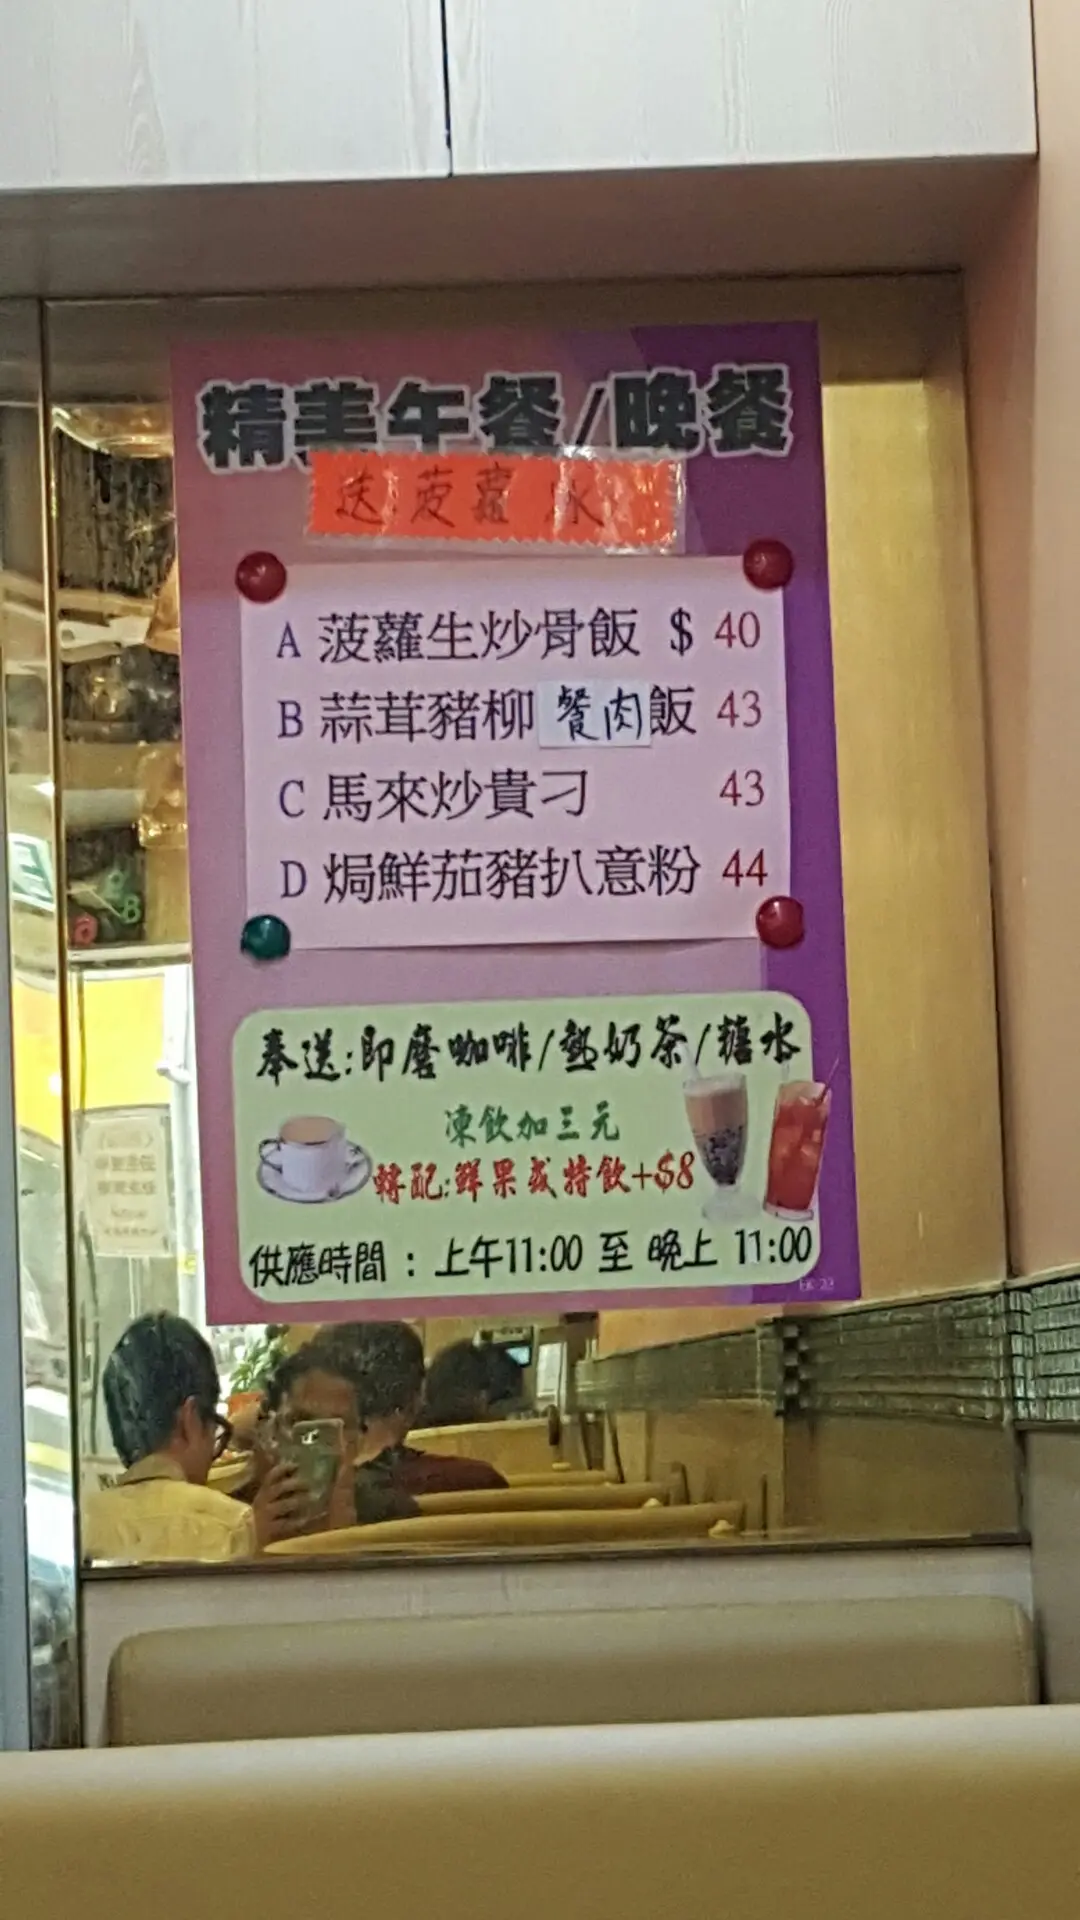 精美午餐/晚餐
送菠蘿 水
A 菠蘿生炒骨飯 $ 40
B 蒜茸豬柳餐肉飯 43
C 馬來炒貴刁 43
D 焗鮮茄豬扒意粉 44
奉送:即磨咖啡/熱奶茶/糖水
凍飲加三元
轉配:鮮果或特飲+$8
供應時間 : 上午11:00 至 晚上 11:00